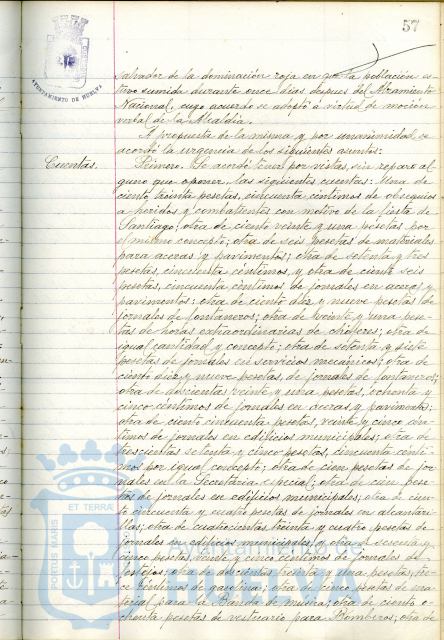 57
AYUNTAMIENTO DE HUELVA
salvador de la dominación roja en que la población es-
tuvo sumida durante once días después del Alzamiento
Nacional, cuyo acuerdo se adoptó á virtud de moción
verbal de la Alcaldía.
A propuesta de la misma y por unanimidad se
acordó la urgencia de los siguientes asuntos:
Cuentas.
Primero. Se acordó tener por vistas, sin reparo al-
guno que oponer, las siguientes cuentas: Una de
ciento treinta pesetas, cincuenta céntimos de obsequios
a heridos y combatientes con motivo de la fiesta de
Santiago; otra de ciento veinte y una pesetas por
el mismo concepto; otra de seis pesetas de materiales
para aceras y pavimentos; otra de setenta y tres
pesetas, cincuenta céntimos, y otra de ciento seis
pesetas, cincuenta céntimos de jornales en aceras y
pavimentos; otra de ciento diez y nueve pesetas de
jornales de fontaneros; otra de veinte y una pese-
tas de horas extraordinarias de chóferes; otra de
igual cantidad y concepto; otra de setenta y siete
pesetas de jornales en servicios mecánicos; otra de
ciento diez y nueve pesetas de jornales de fontaneros;
otra de doscientas veinte y una pesetas, ochenta y
cinco céntimos de jornales en aceras y pavimentos;
otra de ciento cincuenta pesetas, veinte y cinco cén-
timos de jornales en edificios municipales; otra de
trescientas setenta y cinco pesetas, cincuenta cénti-
mos por igual concepto; otra de cien pesetas de jor-
nales en la Secretaría especial; otra de cien pese-
tas de jornales en edificios municipales; otra de cien-
to cincuenta y cuatro pesetas de jornales en alcantari-
llas; otra de cuatrocientas treinta y cuatro pesetas de
jornales en edificios municipales y otra de sesenta y
cinco pesetas, veinte y cinco céntimos de jornales de
festejos; otra de doscientas treinta y una pesetas,
céntimos de gasolina; otra de cinco pesetas de ma-
terial para la Banda de música; otra de ciento o-
chenta pesetas de vestuario para Bomberos; otra de
PORTUS MARIS ET TERRAE
Ayuntamiento de
HUELVA